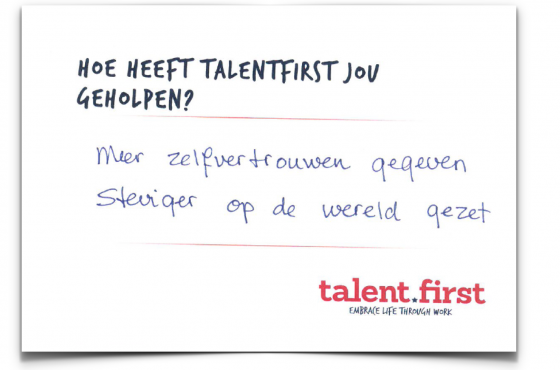 HOE HEEFT TALENTFIRST JOU
GEHOLPEN?
Meer zelfvertrouwen gegeven
Steviger op de wereld gezet
talent.first
EMBRACE LIFE THROUGH WORK